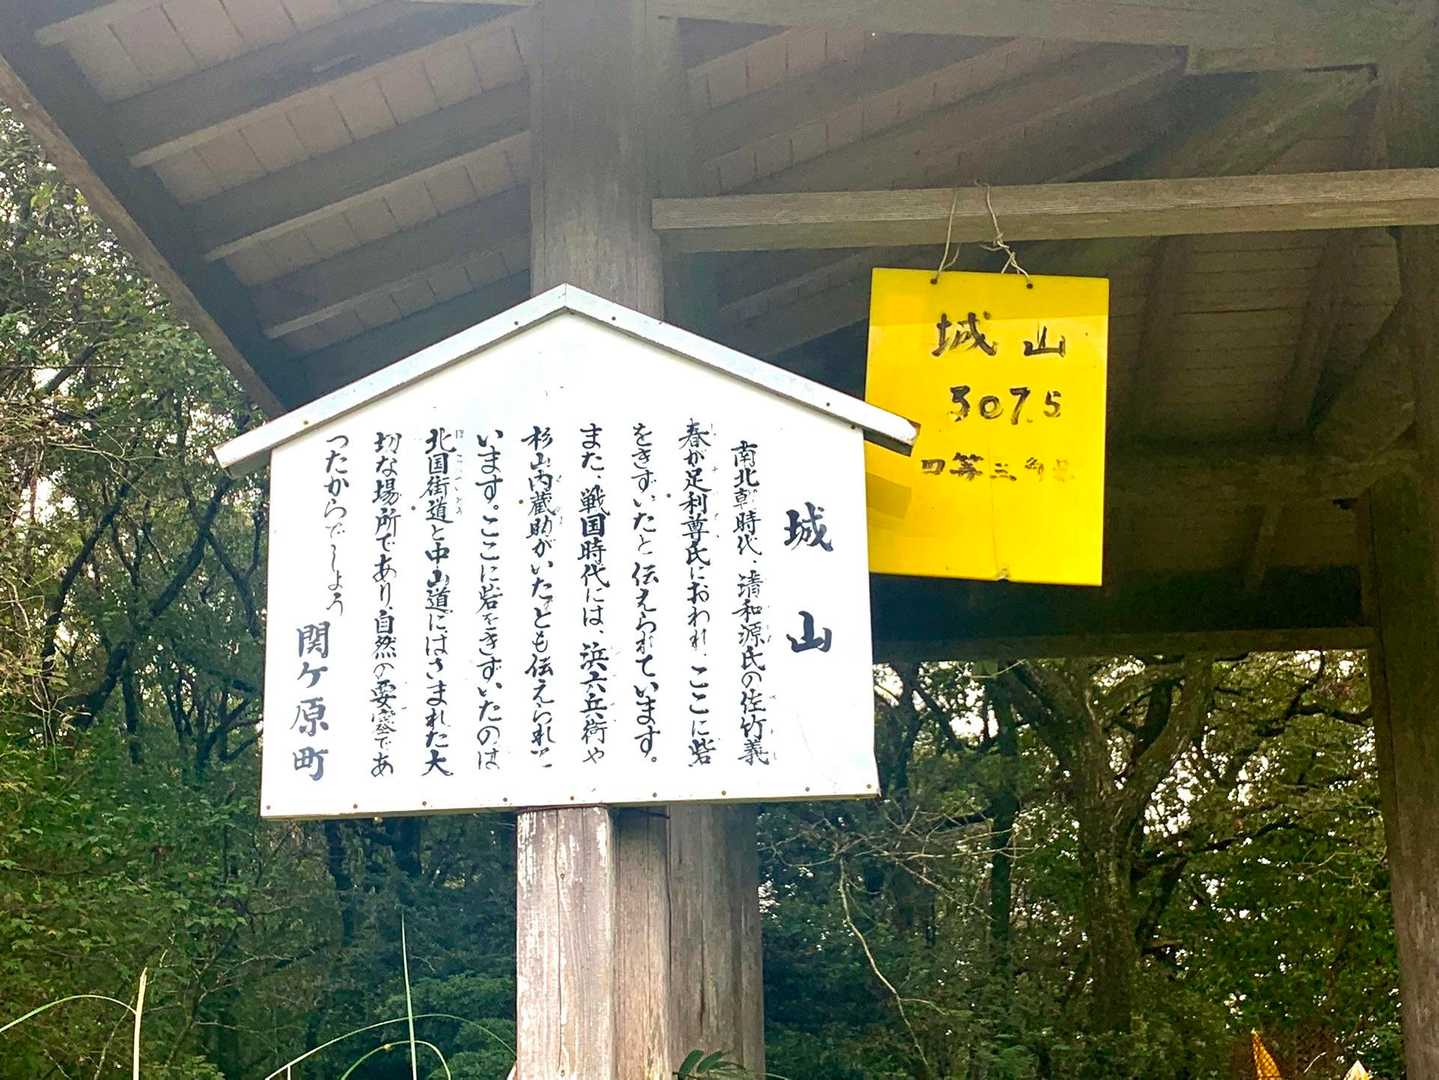 城山
南北朝時代、清和源氏の佐竹義
春が足利尊氏におわれ、ここに砦
をきずいたと伝えられています。
また、戦国時代には、浜六兵衛や
杉山内蔵助がいたとも伝えられて
います。ここに岩をきずいたのは
北国街道と中山道にはさまれた大
切な場所であり、自然の要塞であ
ったからでしょう
関ケ原町
城山
307.5
四等三角